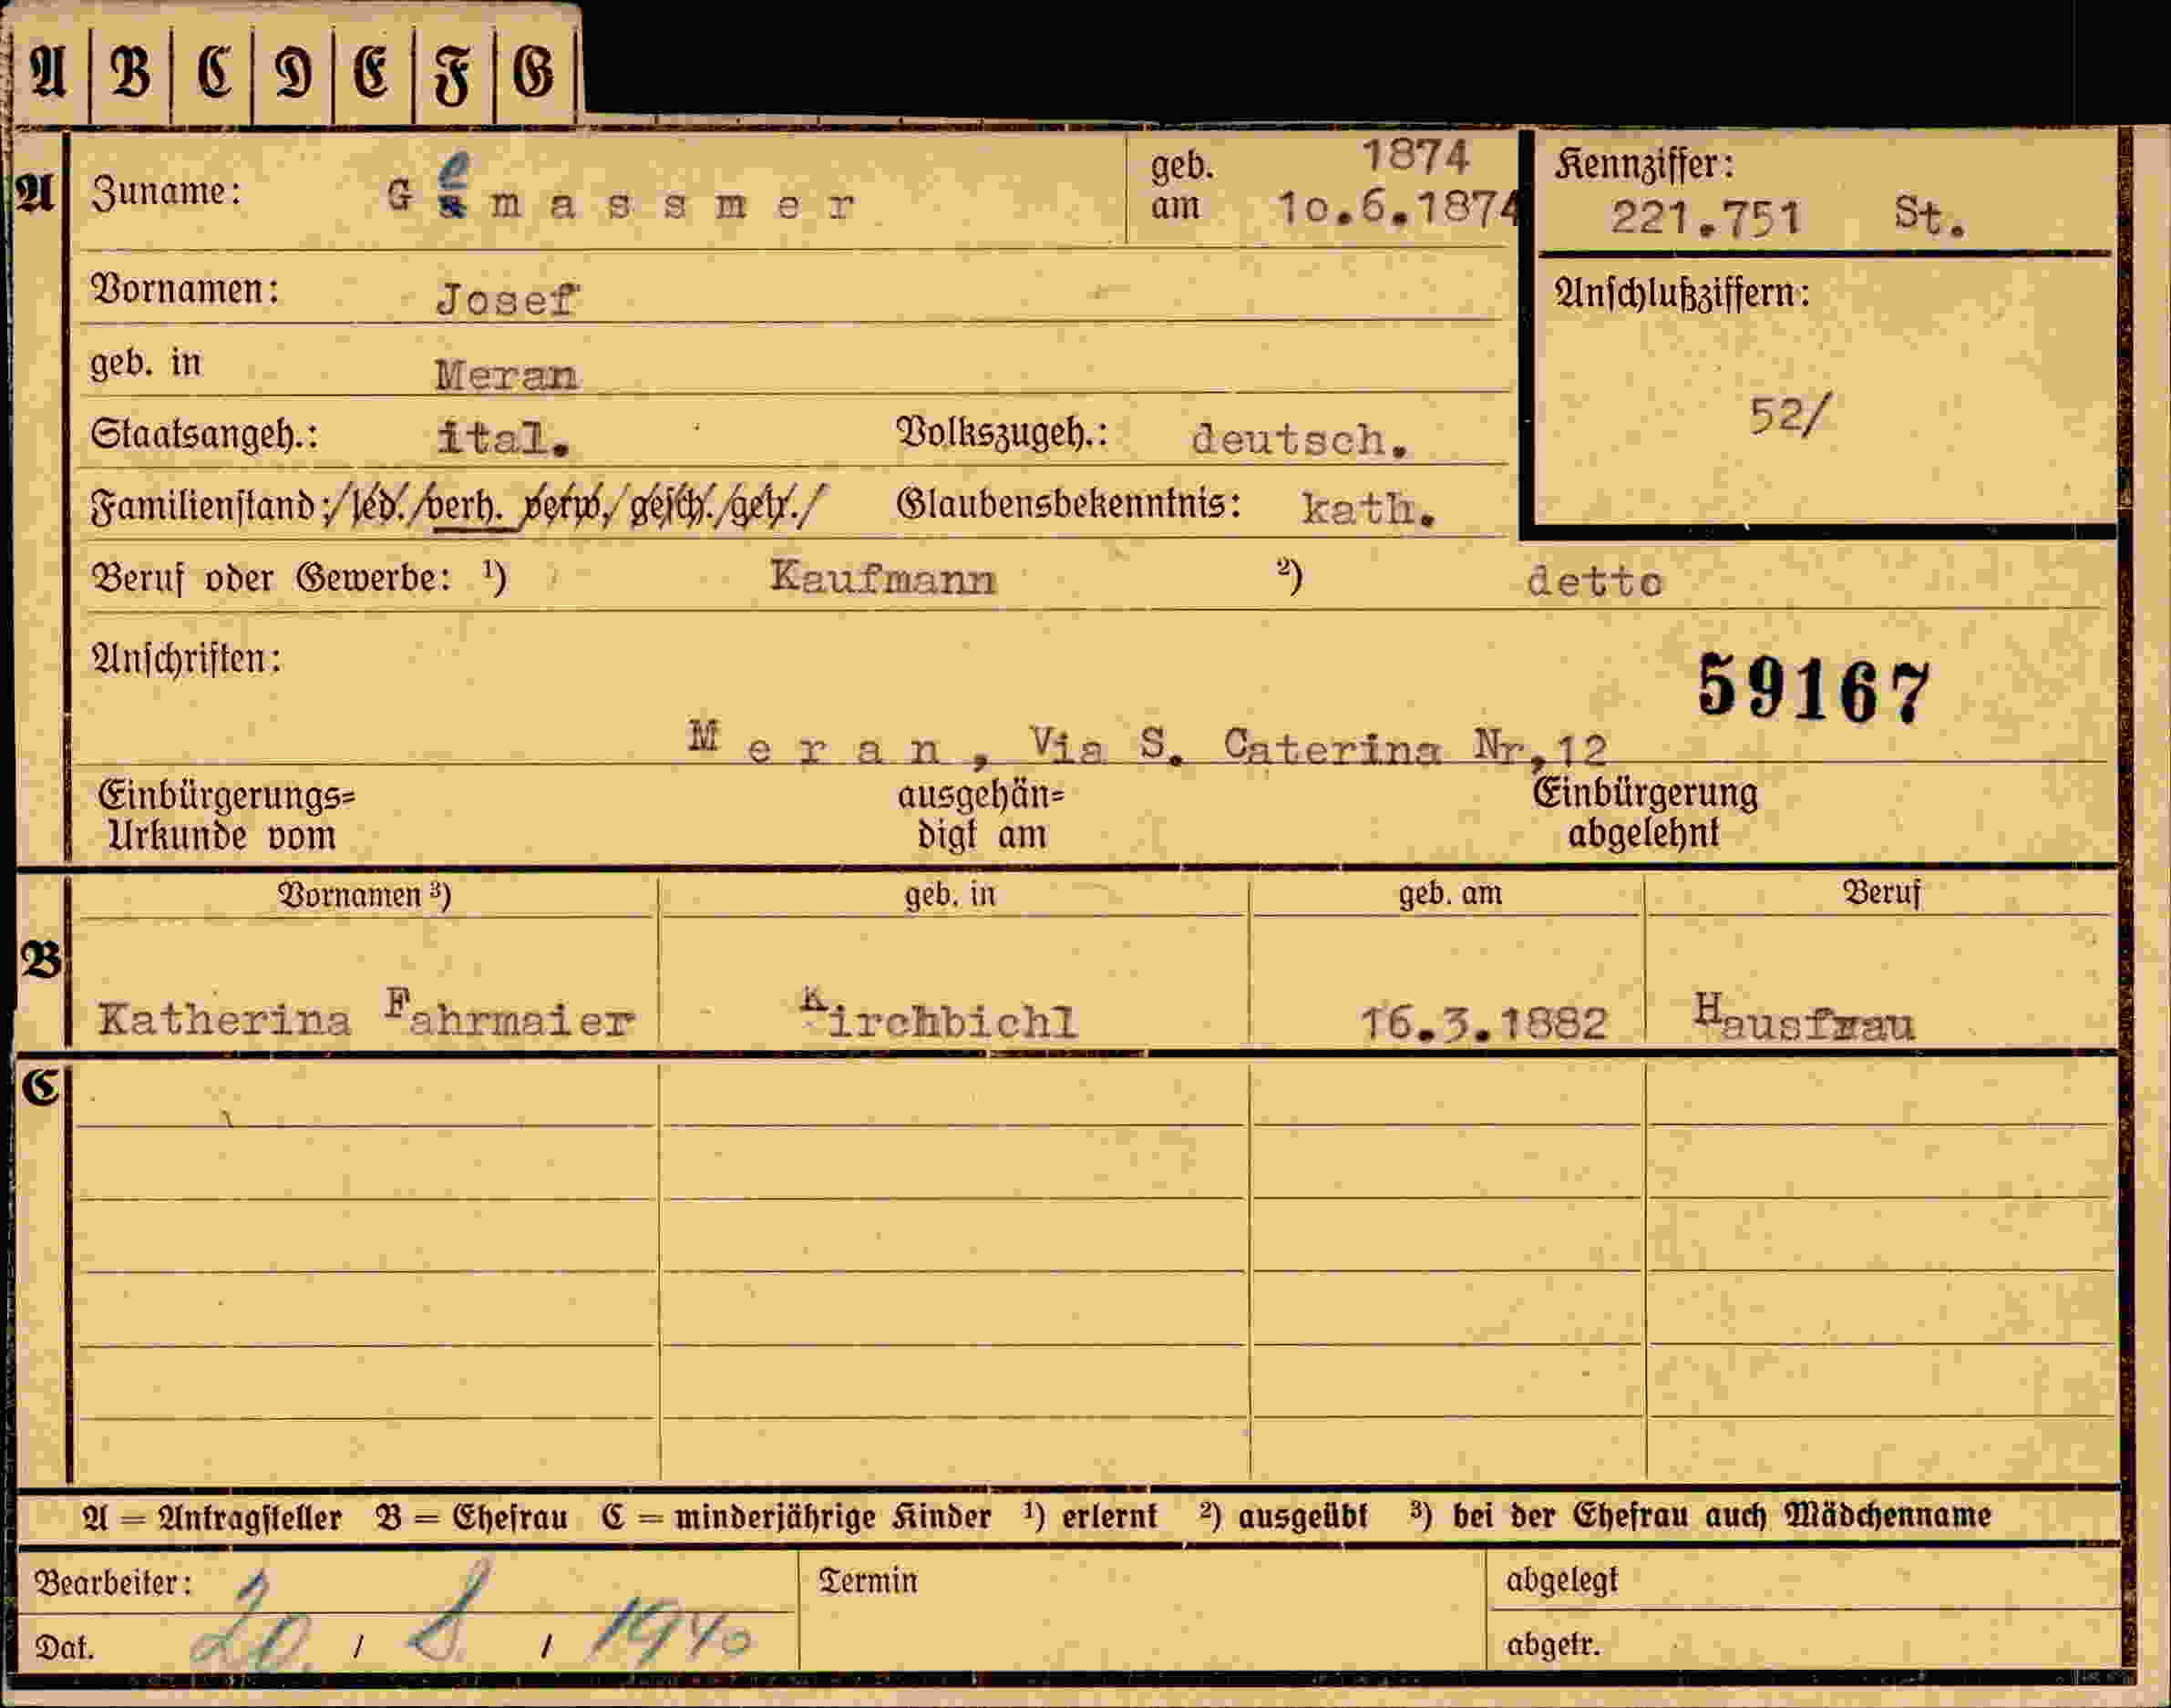 A B C D E F G
A Zuname: Gemassmer geb. am 1874 10.6.1874 Kennziffer: 221.751 St.
Vornamen: Josef Anschlußziffern:
geb. in Meran
Staatsangeh.: ital. Volkszugeh.: deutsch. 52/
Familienstand: /led./verh. verw./gesch./getr./ Glaubensbekenntnis: kath.
Beruf oder Gewerbe: ¹) Kaufmann ²) detto
Anschriften: 59167
Meran, Via S. Caterina Nr,12
Einbürgerungs= ausgehän= Einbürgerung
Urkunde vom digt am abgelehnt
Vornamen ³) geb. in geb. am Beruf
B
Katherina Fahrmaier Kirchbichl 16.3.1882 Hausfrau
C
A = Antragsteller B = Ehefrau C = minderjährige Kinder ¹) erlernt ²) ausgeübt ³) bei der Ehefrau auch Mädchenname
Bearbeiter: Termin abgelegt
Dat. 20. / 8. / 1940 abgetr.